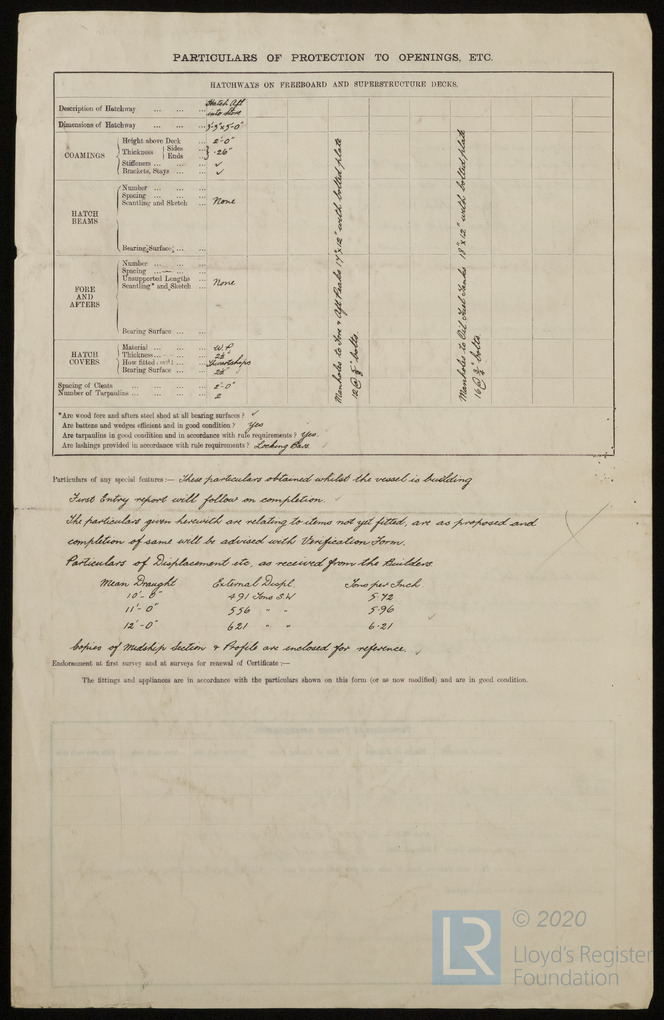 PARTICULARS OF PROTECTION TO OPENINGS, ETC.
HATCHWAYS ON FREEBOARD AND SUPERSTRUCTURE DECKS.
Description of Hatchway ... ... ... Hatch Aft
into Store
Dimensions of Hatchway ... ... 5'-0"
COAMINGS
Height above Deck ... 2'-0"
Thickness { Sides ...
Ends ... } .26"
Stiffeners ... ... ... ✓
Brackets, Stays ... ... ✓
HATCH
BEAMS
Number ... ... ...
Spacing ... ... ...
Scantling and Sketch ... None
Bearing Surface ... ...
FORE
AND
AFTERS
Number ... ... ...
Spacing ... ... ...
Unsupported Lengths ...
Scantling* and Sketch ... None
Bearing Surface ... ...
HATCH
COVERS
Material ... ... ... W.P.
Thickness ... ... 2½"
How fitted ... ... Thwartships
Bearing Surface ... ... 2½"
Spacing of Cleats ... ... ... 2'-0"
Number of Tarpaulins ... ... ... 2
Manholes to Fore & Aft Peaks 17"x12" with bolted plate
12 @ ⅝" bolts.
Manholes to Oil Fuel Tanks 18"x12" with bolted plate
16 @ ¾" bolts.
*Are wood fore and afters steel shod at all bearing surfaces? ✓
Are battens and wedges efficient and in good condition? Yes
Are tarpaulins in good condition and in accordance with rule requirements? Yes.
Are lashings provided in accordance with rule requirements? Locking Bars. ✓
Particulars of any special features:— These particulars obtained whilst the vessel is building
First Entry report will follow on completion. ✓
The particulars given herewith are relating to items not yet fitted, are as proposed and
completion of same will be advised with Verification Form.
Particulars of Displacement etc, as received from the Builders
Mean Draught External Displ. Tons per Inch
10'-0" 491 Tons S.W 5.72
11'-0" 556 " " 5.96
12'-0" 621 " " 6.21 ✓
Copies of Midship Section & Profile are enclosed for reference. ✓
Endorsement at first survey and at surveys for renewal of Certificate:—
The fittings and appliances are in accordance with the particulars shown on this form (or as now modified) and are in good condition.
LR
© 2020
Lloyd's Register
Foundation